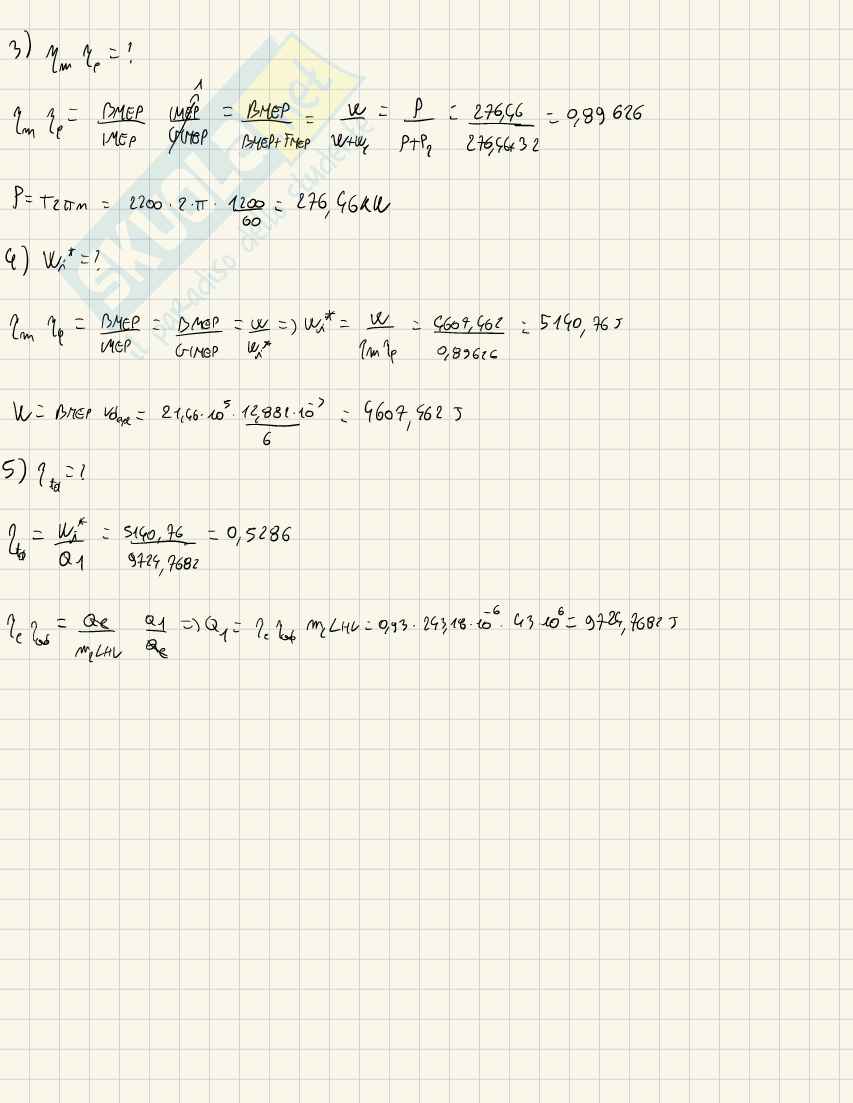 3) ηm ηp = ?
ηm ηp = BMEP/IMEP IMEP/GIMEP 1 = BMEP/BMEP+FMEP = W/W+W = P/P+P = 276,46/276,46+32 = 0,89626
P = T2πn = 2200 · 2 · π · 1200/60 = 276,46kW
4) Wi* = ?
ηm ηp = BMEP/IMEP = BMEP/GIMEP = W/Wi* => Wi* = W/ηm ηp = 4607,462/0,89626 = 5140,76 J
W = BMEP = 21,46·10^5 · 12,882·10^-3/6 = 4607,462 J
5) η = ?
η = Wi*/Q1 = 5140,76/9724,7682 = 0,5286
ηc = Qe/LHV Q1/Qe => Q1 = ηc LHV = 0,93 · 243,18·10^-6 · 43 10^6 = 9724,7682 J
SKUOLA.net
il paradiso dello studente